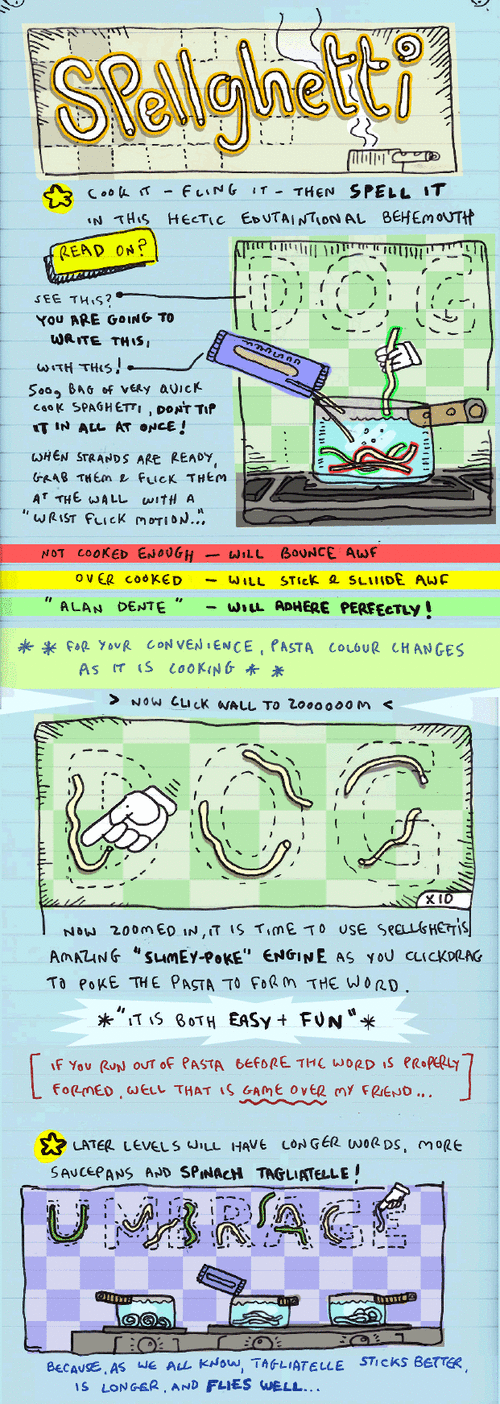 Spellghetti
COOK IT - FLING IT - THEN SPELL IT
IN THIS HECTIC EDUTAINTIONAL BEHEMOUTH
READ ON?
SEE THIS?
YOU ARE GOING TO
WRITE THIS,
WITH THIS!
500g BAG OF VERY QUICK
COOK SPAGHETTI, DON'T TIP
IT IN ALL AT ONCE!
WHEN STRANDS ARE READY,
GRAB THEM & FLICK THEM
AT THE WALL WITH A
"WRIST FLICK MOTION..."
DOG
NOT COOKED ENOUGH - WILL BOUNCE AWF
OVER COOKED - WILL STICK & SLIIIDE AWF
"ALAN DENTE" - WILL ADHERE PERFECTLY!
* * FOR YOUR CONVENIENCE, PASTA COLOUR CHANGES
AS IT IS COOKING * *
> NOW CLICK WALL TO ZOOOOOOM <
DOG
X10
NOW ZOOMED IN, IT IS TIME TO USE SPELLGHETTI'S
AMAZING "SLIMEY-POKE" ENGINE AS YOU CLICKDRAG
TO POKE THE PASTA TO FORM THE WORD.
*"IT IS BOTH EASY + FUN"*
[IF YOU RUN OUT OF PASTA BEFORE THE WORD IS PROPERLY
FORMED, WELL THAT IS GAME OVER MY FRIEND...]
LATER LEVELS WILL HAVE LONGER WORDS, MORE
SAUCEPANS AND SPINACH TAGLIATELLE!
UMBRAGE
BECAUSE, AS WE ALL KNOW, TAGLIATELLE STICKS BETTER,
IS LONGER, AND FLIES WELL...